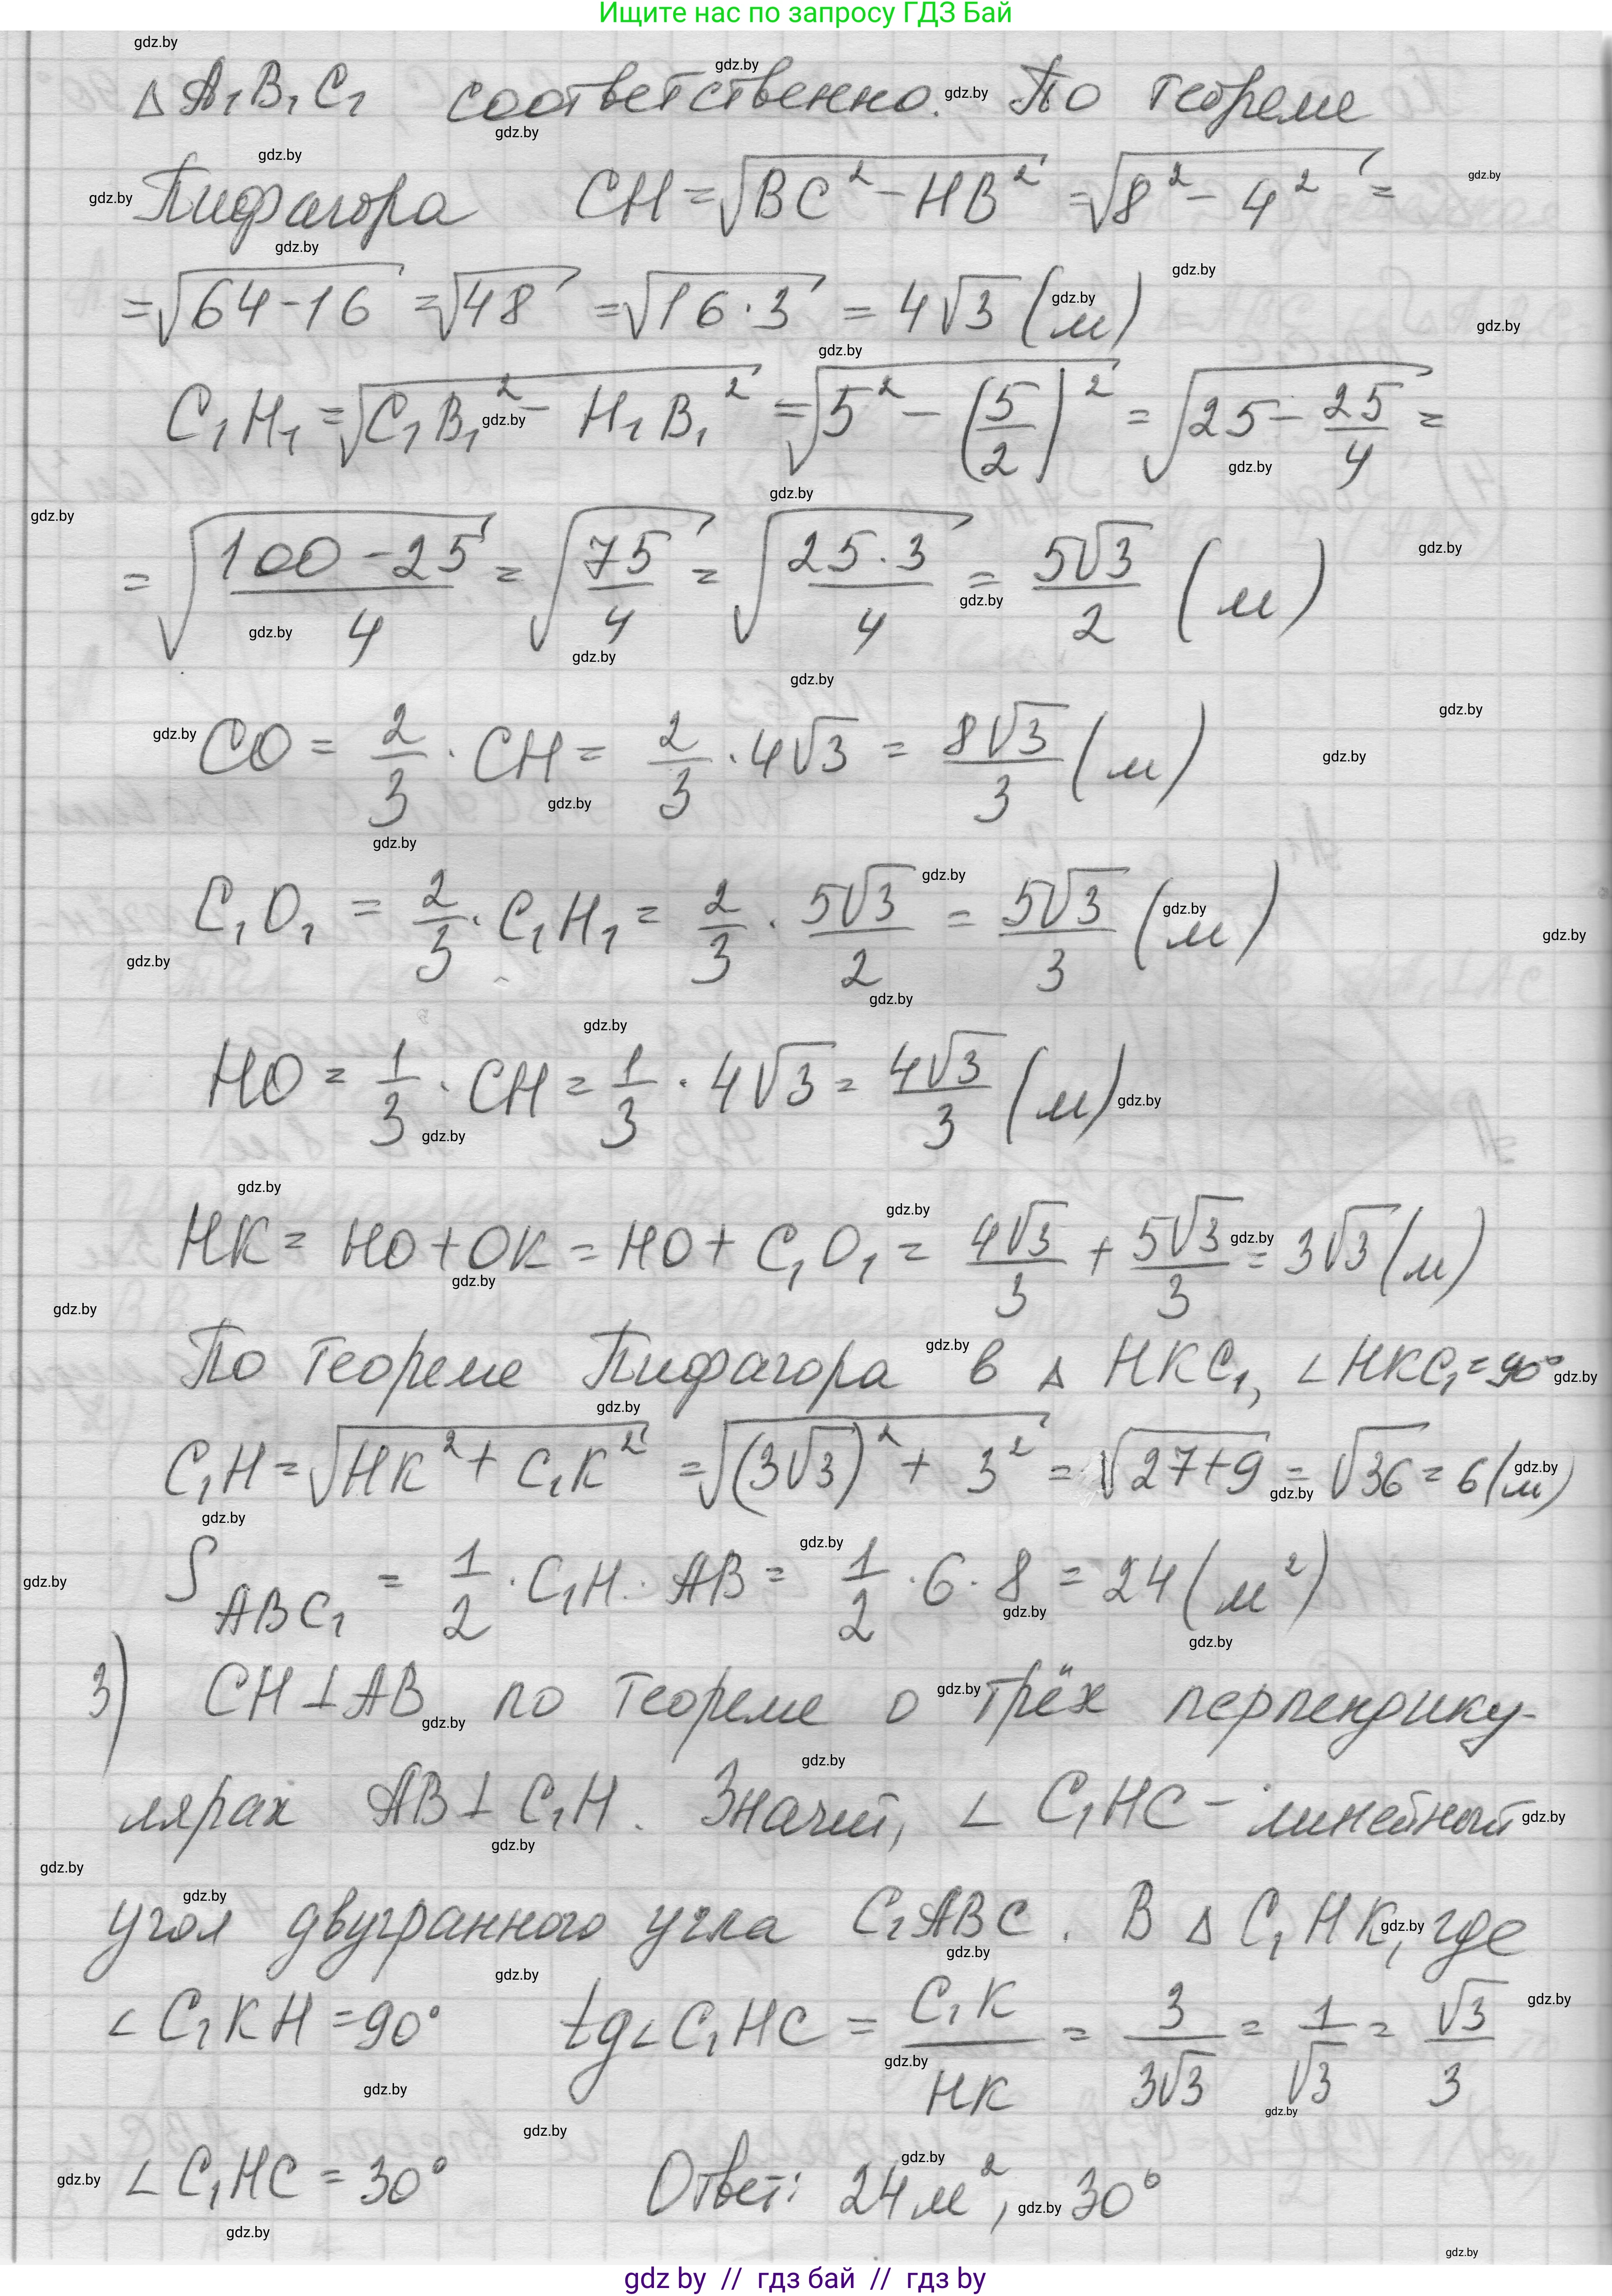 Ищите нас по запросу ГДЗ Бай
△ A₁B₁C₁ соответственно. По теореме
Пифагора CH = √(BC² − HB²) = √(8² − 4²) =
= √(64 − 16) = √48 = √(16 · 3) = 4√3 (м)
C₁H₁ = √(C₁B₁² − H₁B₁²) = √(5² − (5/2)²) = √(25 − 25/4) =
= √((100 − 25)/4) = √(75/4) = √((25 · 3)/4) = 5√3/2 (м)
CO = 2/3 · CH = 2/3 · 4√3 = 8√3/3 (м)
C₁O₁ = 2/3 · C₁H₁ = 2/3 · 5√3/2 = 5√3/3 (м)
HO = 1/3 · CH = 1/3 · 4√3 = 4√3/3 (м)
HK = HO + OK = HO + C₁O₁ = 4√3/3 + 5√3/3 = 3√3 (м)
По теореме Пифагора в △ HKC₁, ∠HKC₁ = 90°
C₁H = √(HK² + C₁K²) = √((3√3)² + 3²) = √(27 + 9) = √36 = 6 (м)
S ABC₁ = 1/2 · C₁H · AB = 1/2 · 6 · 8 = 24 (м²)
3) CH ⊥ AB по теореме о трёх перпендику-
лярах AB ⊥ C₁H. Значит, ∠ C₁HC – линейный
угол двугранного угла C₁ABC. В △ C₁HK, где
∠ C₁KH = 90° tg∠C₁HC = C₁K/HK = 3/3√3 = 1/√3 = √3/3
∠ C₁HC = 30° Ответ: 24 м², 30°
gdz by // гдз бай // гдз by